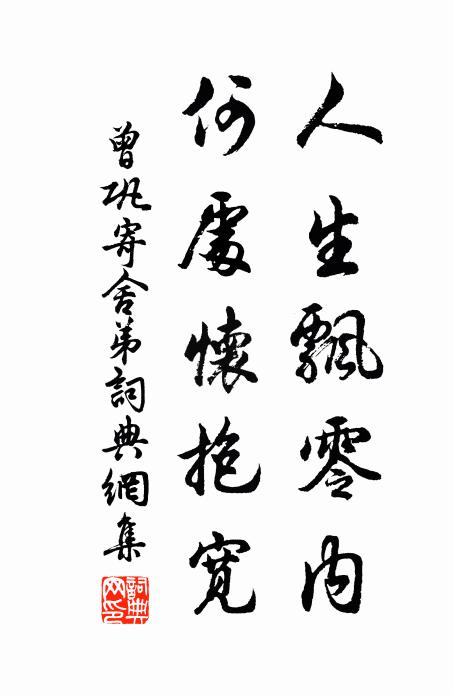 人生飄零內
何處懷抱寬
曾巩寄舍弟詞典網集
詞典网印